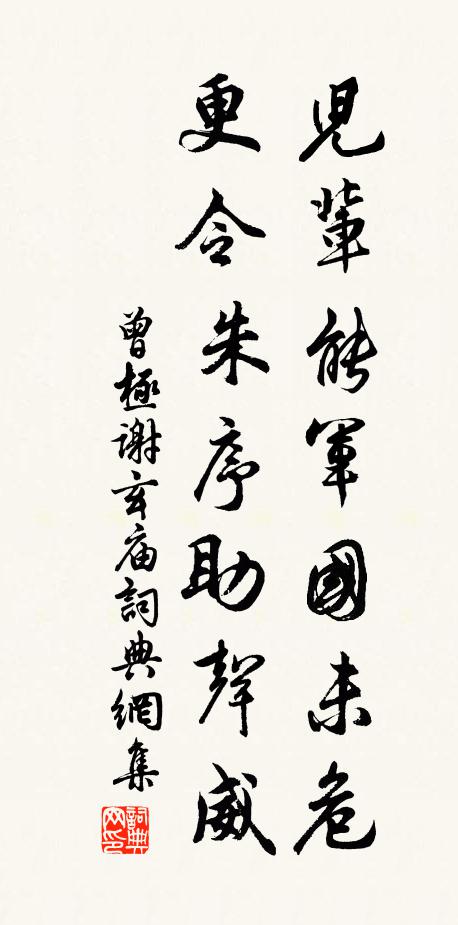 兒輩能軍國未危
更令朱序助聲威
曾極謝玄庙詞典網集
詞典网印